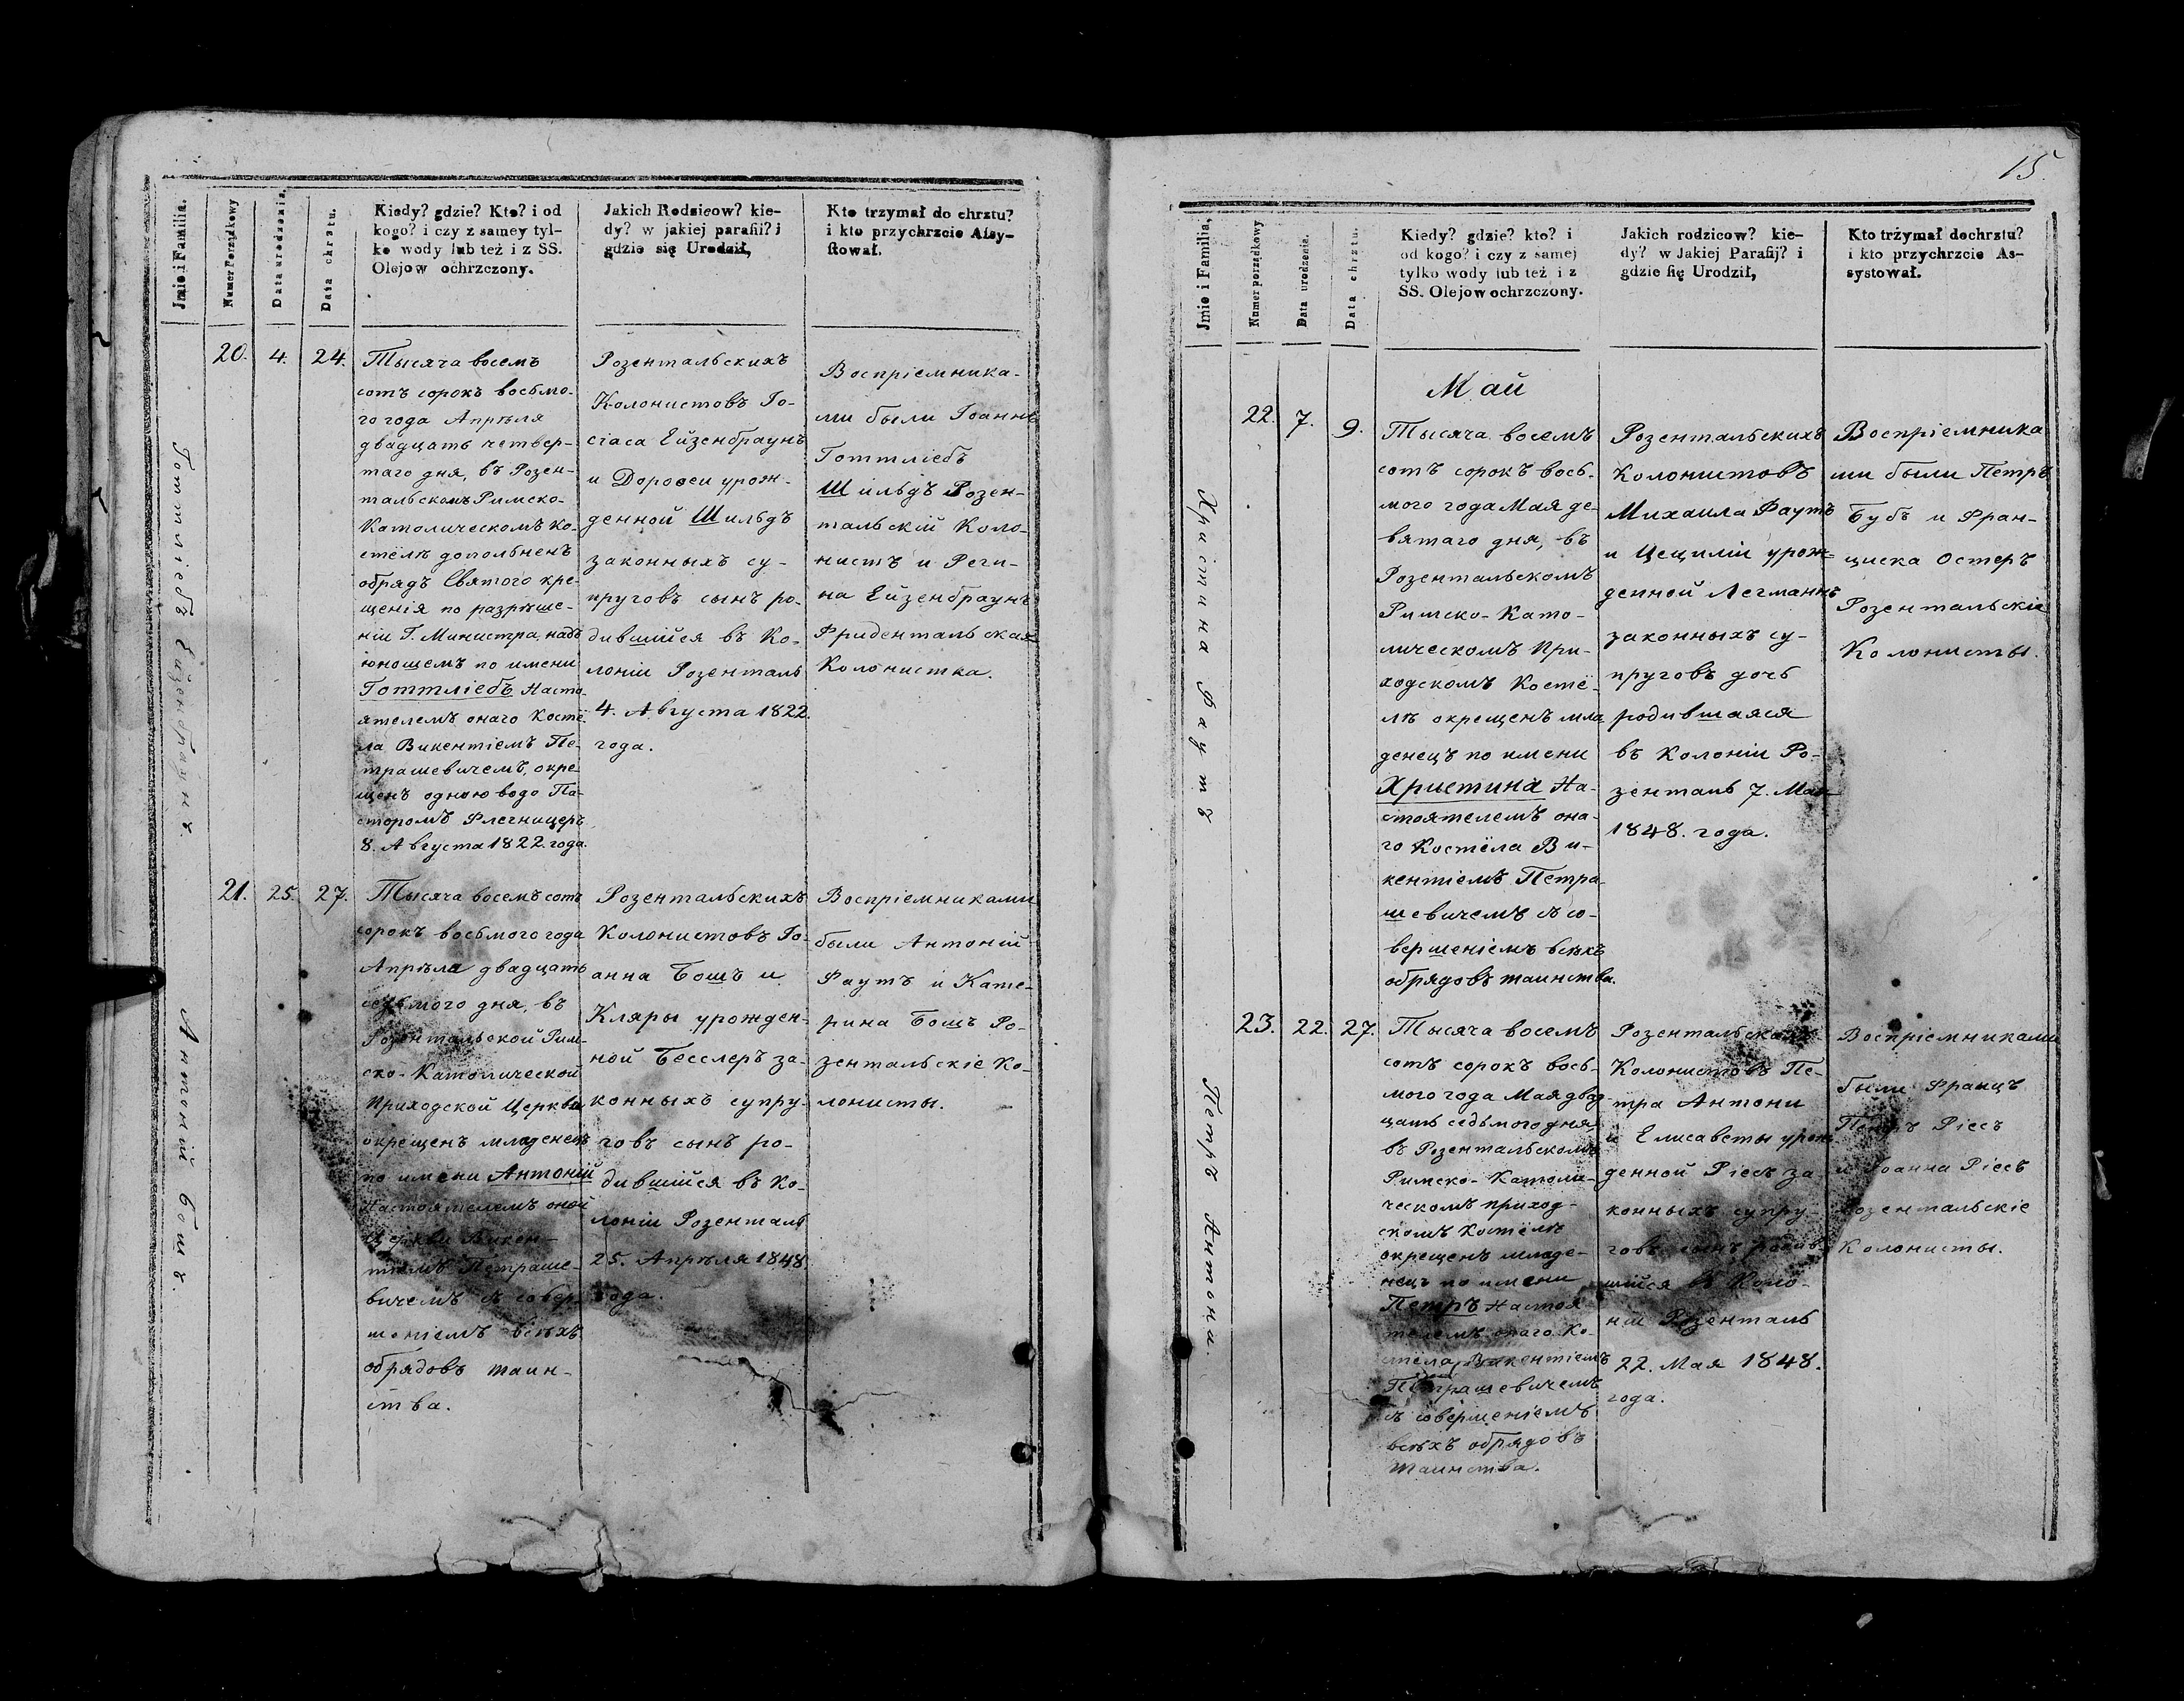 Jmie i Familia.
Numer Porządkowy
Data urodzenia.
Data chrztu.
Kiedy? gdzie? Kto? i od
kogo? i czy z samey tyl-
ko wody lub też i z SS.
Olejow ochrzczony.
Jakich Rodzicow? kie-
dy? w jakiej parafii? i
gdzie się Urodził,
Kto trzymał do chrztu?
i kto przychrzcie Assy-
stował.
Готтліебъ Ейзенбраунъ.
20.
4.
24.
Тысяча восемъ
сотъ сорокъ восьмо-
го года Апрѣля
двадцать четвер-
таго дня, въ Розен-
тальскомъ Римско-
Католическомъ ко-
стёлѣ дополненъ
обрядъ Святого кре-
щенія по разрѣше-
ніи Г. Министра, надъ
юношемъ по имени
Готтліебъ Насто-
ятелемъ онаго Костё-
ла Викентіемъ Пе-
трашевичемъ, окре-
щенъ одною водо Па-
сторомъ Флегницеръ
8. Августа 1822 года.
Розентальскихъ
Колонистовъ Іо-
сіаса Ейзенбраунъ
и Дорофеи урож-
денной Шильдъ
законныхъ су-
пруговъ сынъ ро-
дившійся въ Ко-
лоніи Розенталь
4. Августа 1822.
года.
Воспріемника-
ми были Іоаннъ
Готтліебъ
Шильдъ Розен-
тальскій Коло-
нистъ и Реги-
на Ейзенбраунъ
Фридентальская
Колонистка.
Антоній Бошъ.
21.
25.
27.
Тысяча восемъ сотъ
сорокъ восьмого года
Апрѣля двадцать
седьмого дня, въ
Розентальской Рим-
ско-Католической
Приходской Церкви
окрещенъ младенецъ
по имени Антоній
Настоятелемъ оной
Церкви Викен-
тіемъ Петраше-
вичемъ съ совер-
шеніемъ всѣхъ
обрядовъ таин-
ства.
Розентальскихъ
Колонистовъ Іо-
анна Бошъ и
Кляры урожден-
ной Бесслеръ за-
конныхъ супру-
говъ сынъ ро-
дившійся въ Ко-
лоніи Розенталь
25. Апрѣля 1848
года.
Воспріемниками
были Антоній
Раутъ и Кате-
рина Бошъ Ро-
зентальскіе Ко-
лонисты.
15.
Jmie i Familia,
Numer porządkowy
Data urodzenia.
Data chrztu.
Kiedy? gdzie? kto? i
od kogo? i czy z samej
tylko wody lub też i z
SS. Olejow ochrzczony.
Jakich rodzicow? kie-
dy? w Jakiej Parafij? i
gdzie się Urodził,
Kto trżymał dochrztu?
i kto przychrzcie As-
systował.
Май
Христина Раутъ
22.
7.
9.
Тысяча восемъ
сотъ сорокъ вось-
мого года Мая де-
вятаго дня, въ
Розентальскомъ
Римско-Като-
лическомъ При-
ходскомъ Костё-
лѣ окрещенъ мла
денецъ по имени
Христина На-
стоятелемъ она-
го Костёла Ви-
кентіемъ Петра-
шевичемъ съ со-
вершеніемъ всѣхъ
обрядовъ таинства.
Розентальскихъ
Колонистовъ
Михаила Раутъ
и Цециліи урож-
денной Легманнъ
законныхъ су-
пруговъ дочь
родившаяся
въ Колоніи Ро-
зенталь 7. Мая
1848. года.
Воспріемника
ми были Петръ
Бубъ и Фран-
циска Остеръ
Розентальскіе
Колонисты.
Петръ Антони.
23.
22.
27.
Тысяча восемъ
сотъ сорокъ вось-
мого года Мая двад
цать седьмого дня,
въ Розентальскомъ
Римско-Католи-
ческомъ приход-
скомъ костёлѣ
окрещенъ младе-
нецъ по имени
Петръ Настоя
телемъ онаго Ко-
стёла Викентіемъ
Петрашевичемъ
съ совершеніемъ
всѣхъ обрядовъ
таинства.
Розентальскихъ
Колонистовъ Пе-
тра Антони
и Елисаветы урож
денной Ріесъ за
конныхъ супру-
говъ сынъ родив
шійся въ Коло-
ніи Розенталь
22. Мая 1848.
года.
Воспріемниками
были Францъ
Петръ Ріесъ
и Іоанна Ріесъ
Розентальскіе
Колонисты.